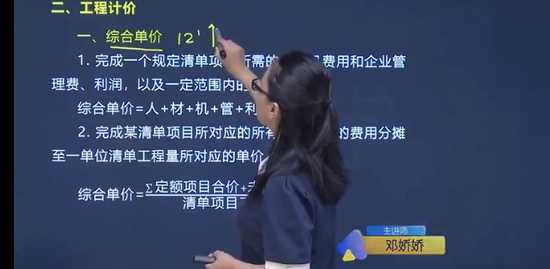 二、工程计价
一、综合单价 12'
1. 完成一个规定清单项 所需的 费用和企业管
理费、利润，以及一定范围内的
综合单价=人+材+机+管+利
2. 完成某清单项目所对应的所有 的费用分摊
至一单位清单工程量所对应的单价
综合单价=Σ定额项目合价+
清单项目
主讲师
邓娇娇